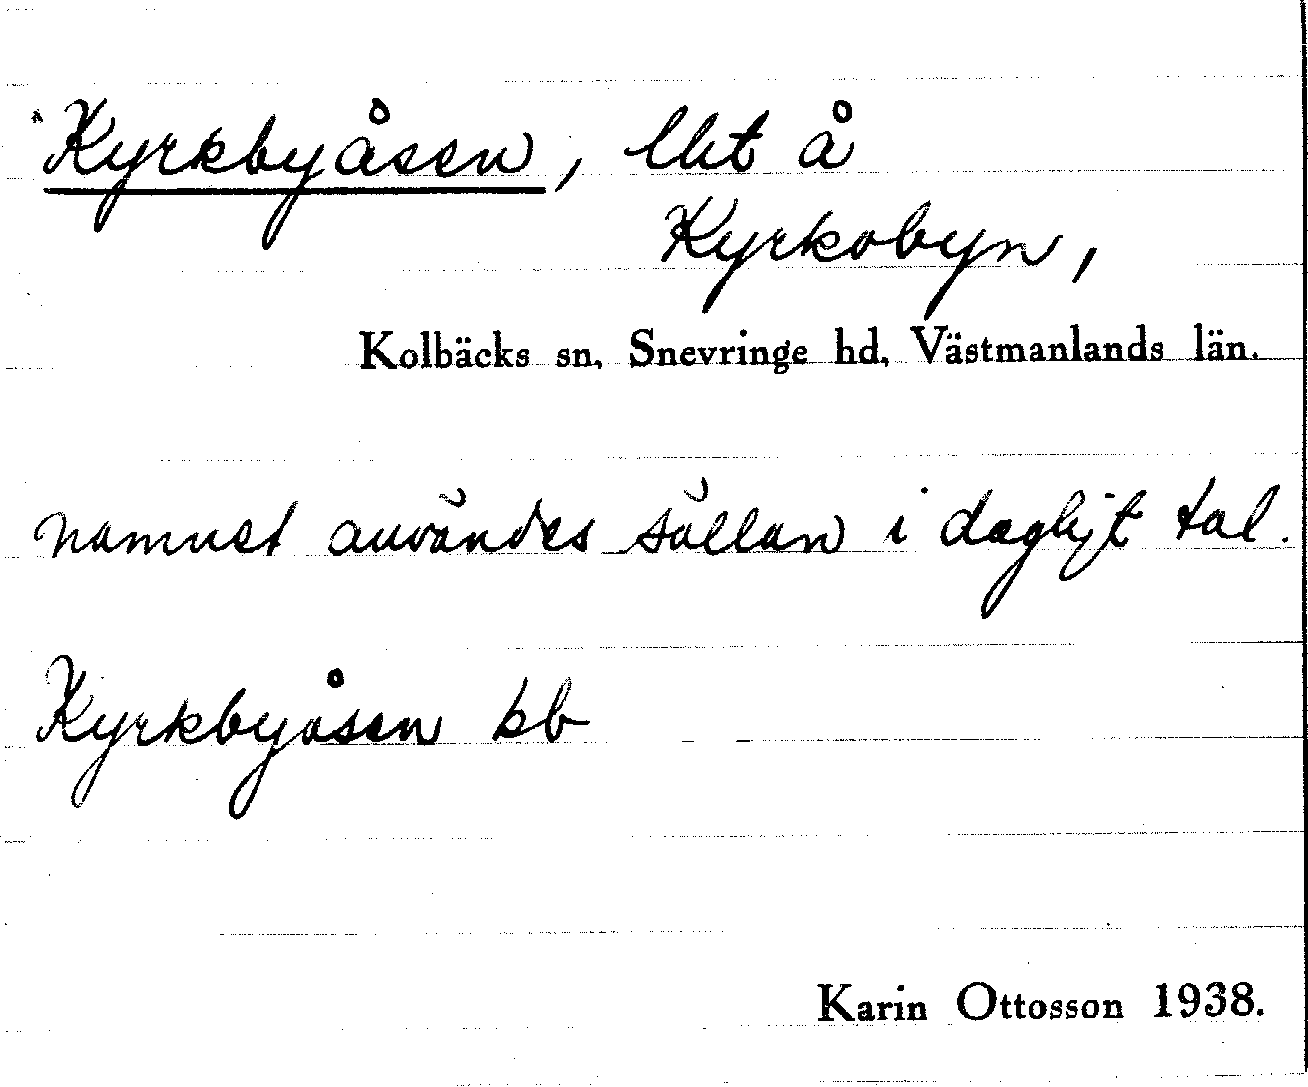 Kyrkbyåsen, llkt å
Kyrkobyn,
Kolbäcks sn, Snevringe hd, Västmanlands län.
namnet användes sällan i dagligt tal.
Kyrkbyåsen kb
Karin Ottosson 1938.